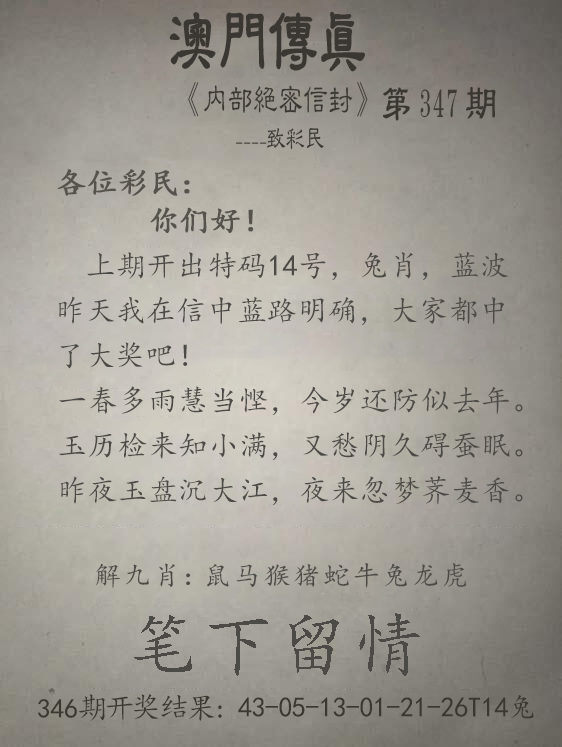 澳門傳眞
《内部絕密信封》第347期
----致彩民
各位彩民：
你们好！
上期开出特码14号，兔肖，蓝波
昨天我在信中蓝路明确，大家都中
了大奖吧！
一春多雨慧当悭，今岁还防似去年。
玉历检来知小满，又愁阴久碍蚕眠。
昨夜玉盘沉大江，夜来忽梦荞麦香。
解九肖：鼠马猴猪蛇牛兔龙虎
笔下留情
346期开奖结果：43-05-13-01-21-26T14兔